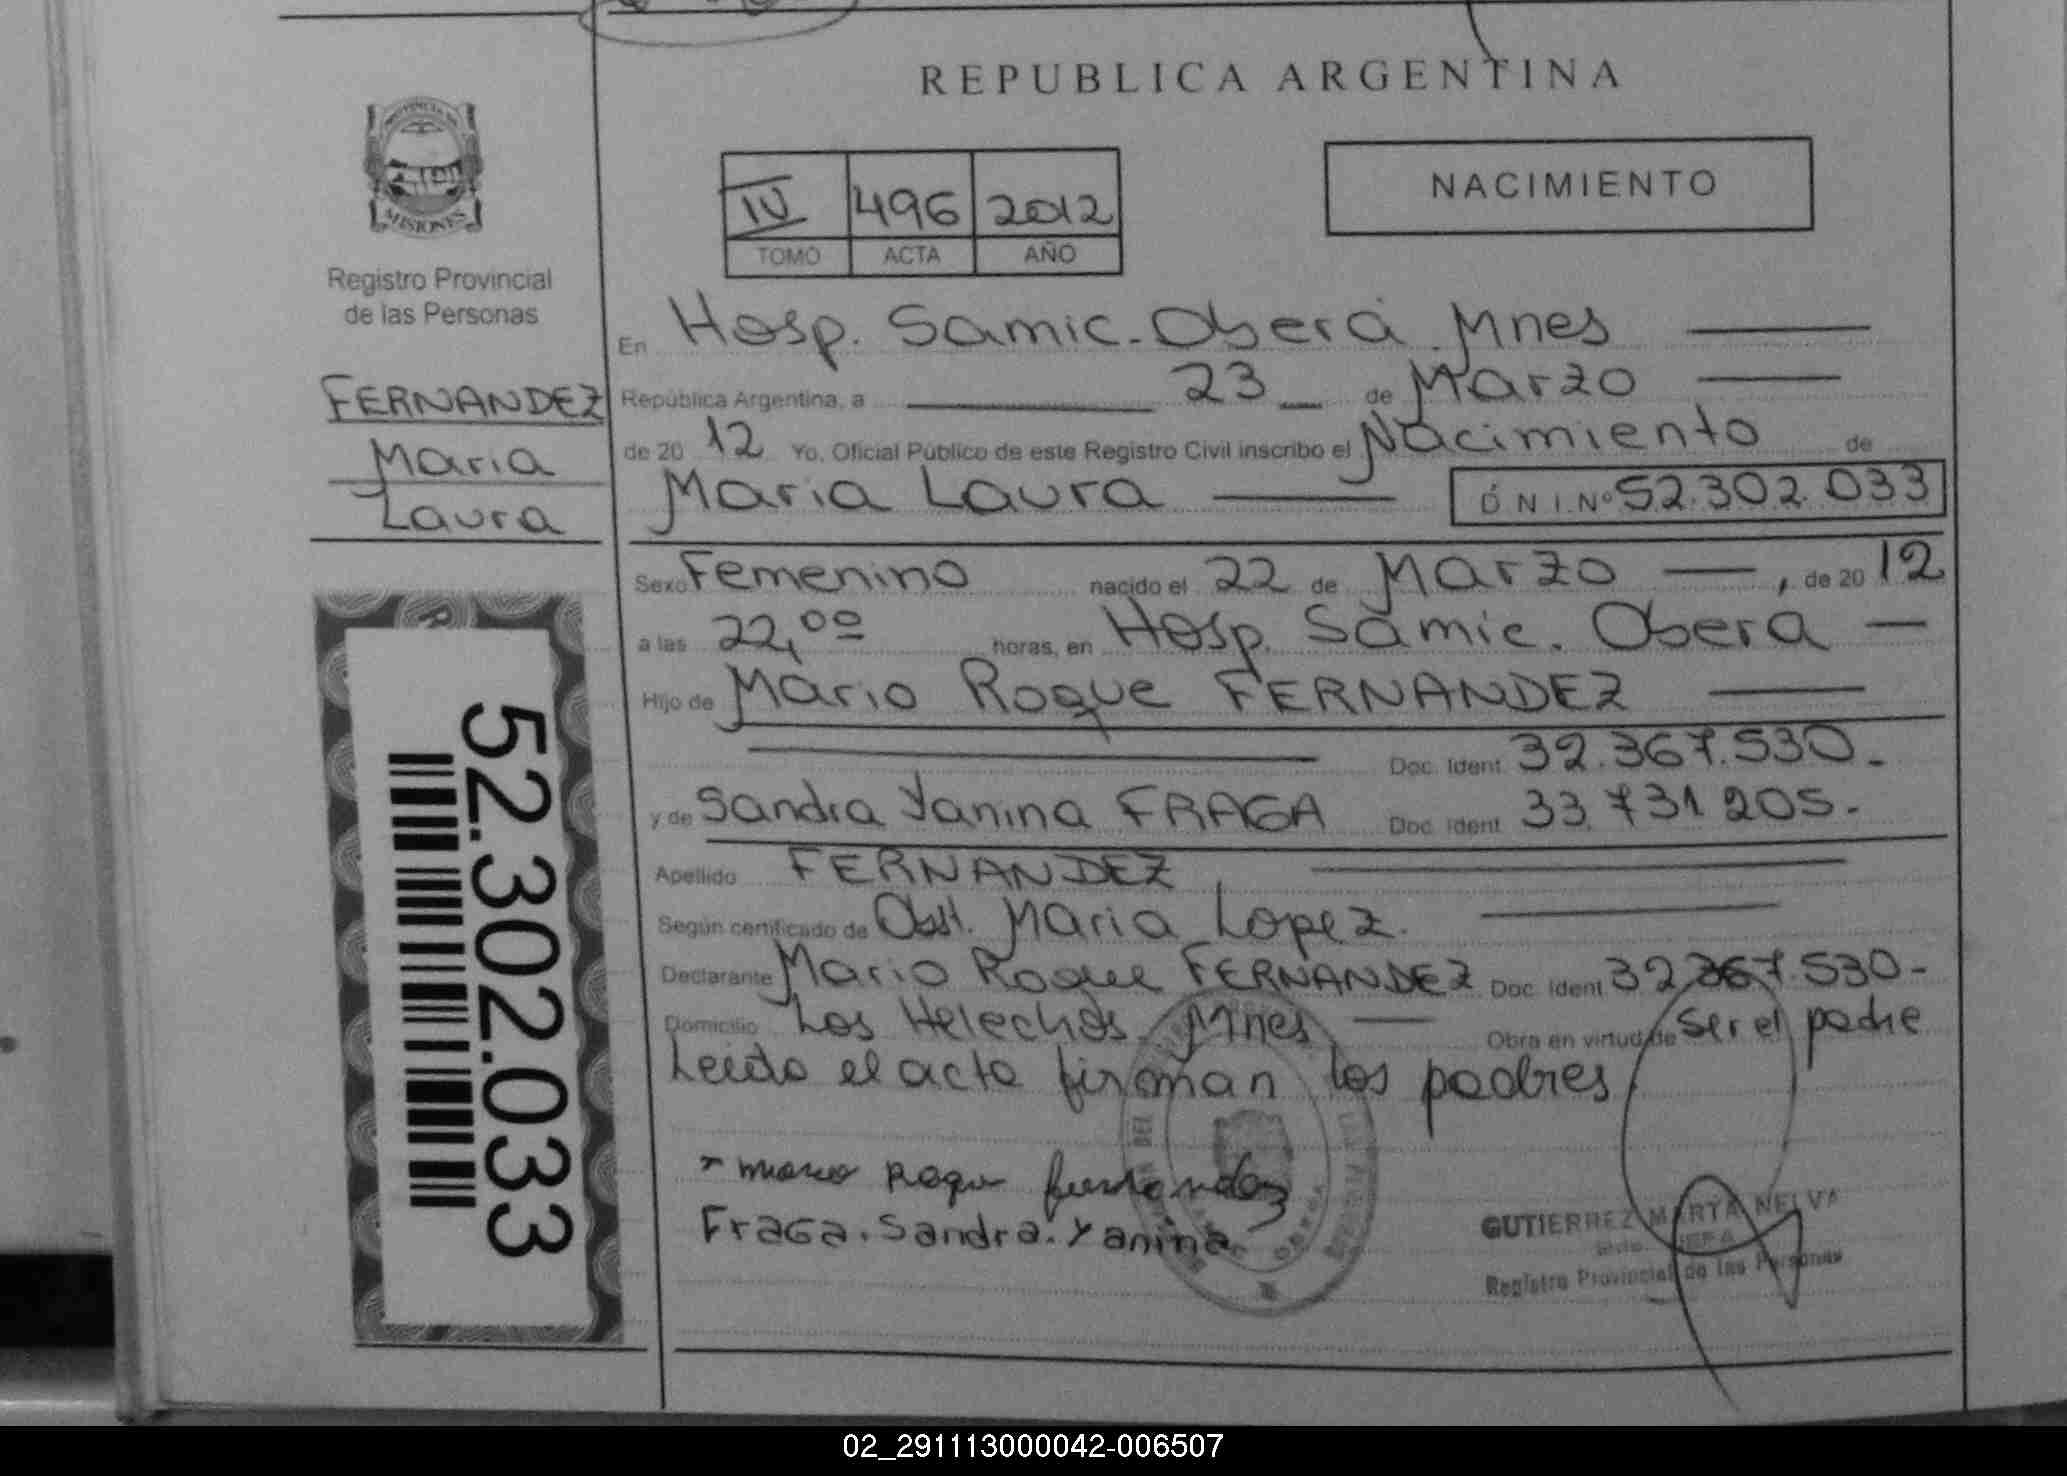 REPUBLICA ARGENTINA
PROVINCIA DE
MISIONES
Registro Provincial
de las Personas
FERNANDEZ
Maria
Laura
52.302.033
IV 496 2012
TOMO ACTA AÑO
NACIMIENTO
En Hosp. Samic. Oberá. Mnes
República Argentina, a 23 de Marzo
de 20 12 Yo, Oficial Público de este Registro Civil inscribo el Nacimiento de
Maria Laura D N I. Nº 52.302.033
Sexo Femenino nacido el 22 de Marzo, de 20 12
a las 22,00 horas, en Hosp. Samic. Obera
Hijo de Mario Roque FERNANDEZ
Doc. Ident. 32.367.530.-
y de Sandra Yanina FRAGA Doc. Ident. 33.731.205.-
Apellido FERNANDEZ
Según certificado de Obst. Maria Lopez.
Declarante Mario Roque FERNANDEZ Doc. Ident. 32.367.530-
Domicilio Los Helechos. Mnes Obra en virtud de ser el padre
Leido el acta firman los padres
mario Roque fernandez
Fraga. Sandra. Yanina
GUTIERREZ MARTA NELVA
JEFA
Registro Provincial de las Personas
02_291113000042-006507